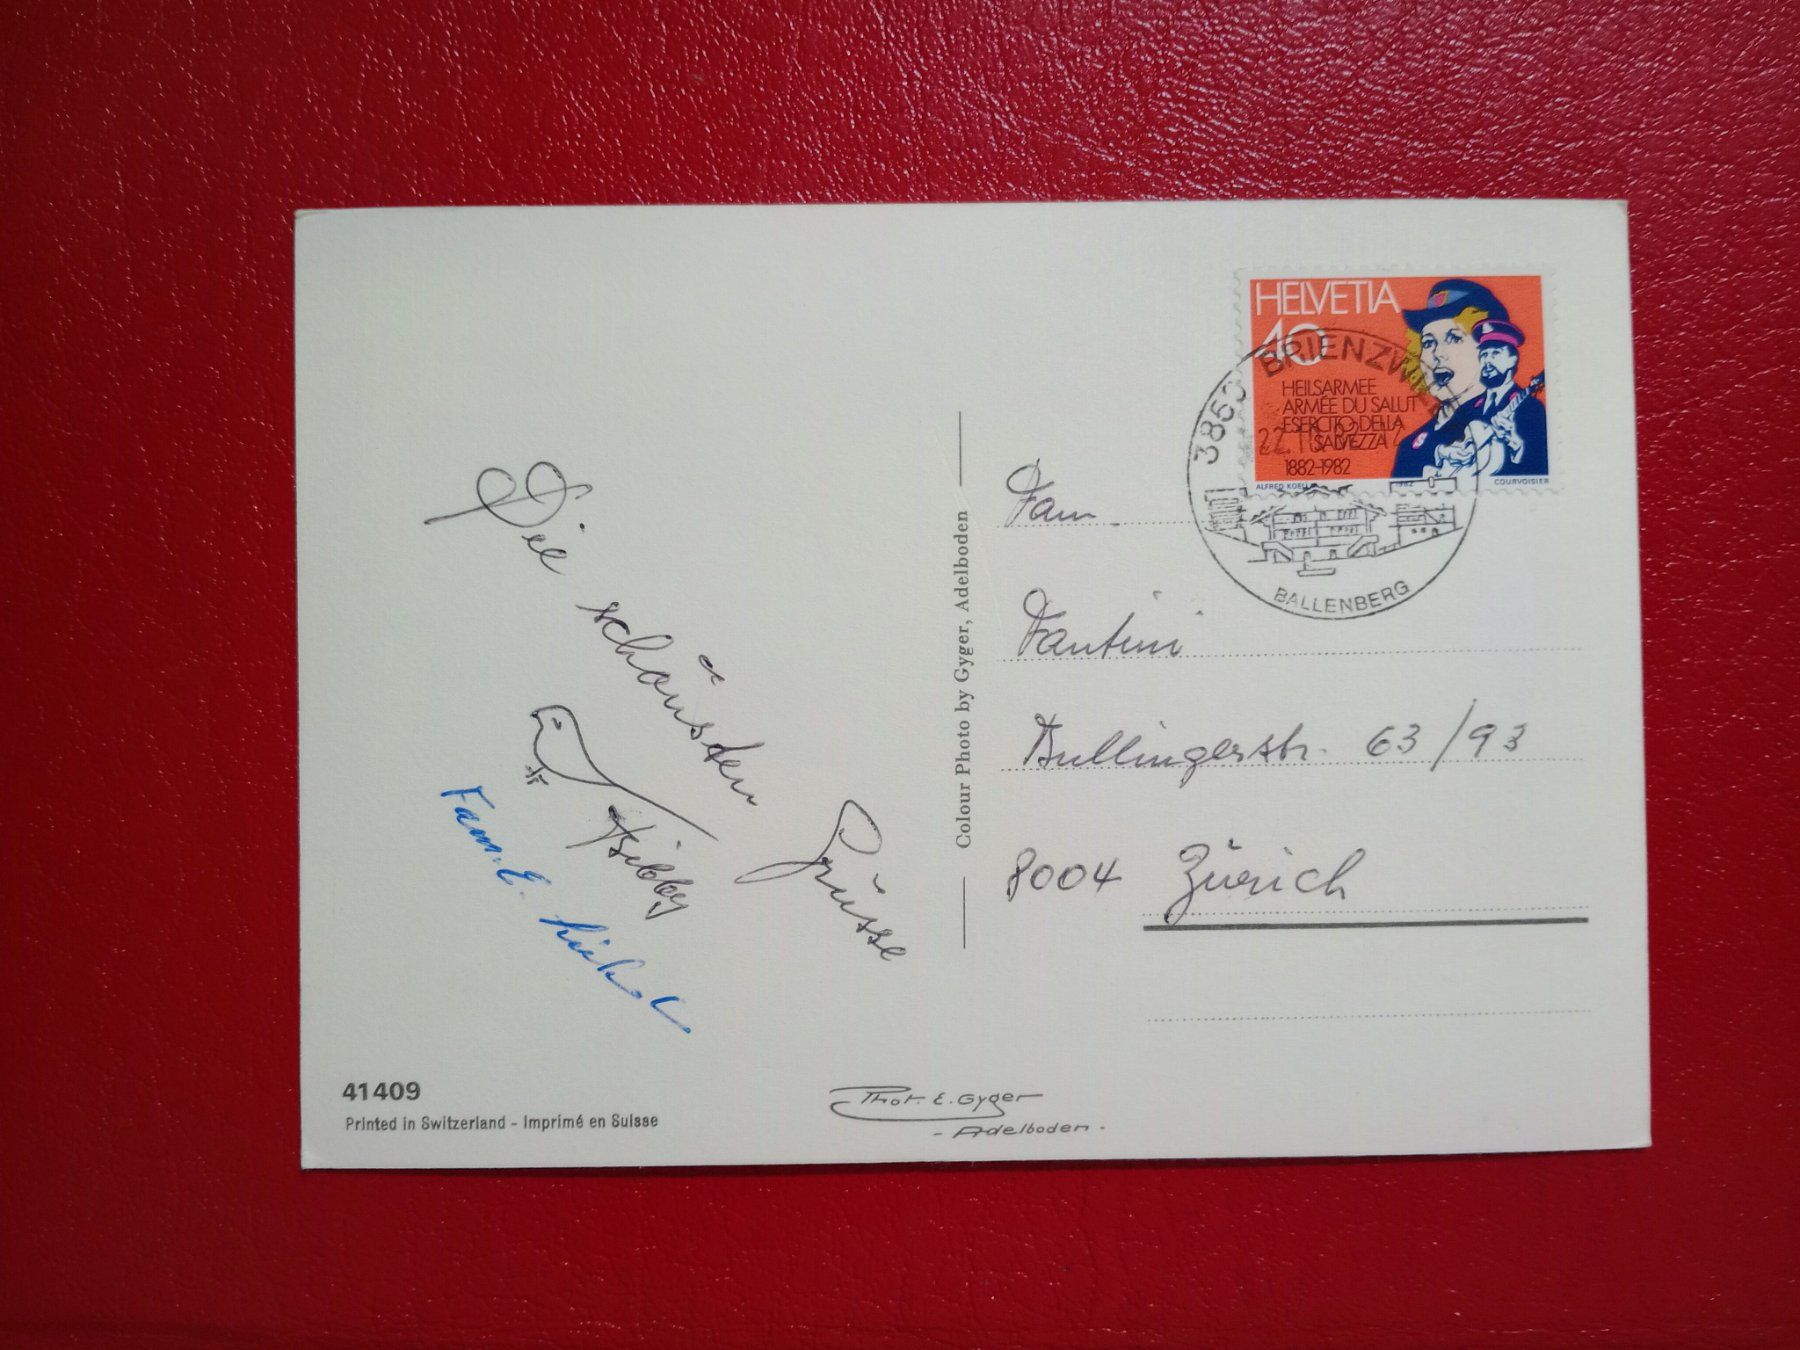 Die schönsten Grüsse
Fam.
Colour Photo by Gyger, Adelboden
HELVETIA
40
HEILSARMEE
ARMÉE DU SALUT
ESERCITO DELLA
SALVEZZA
1882-1982
1982
COURVOISIER
BRIENZWILER
BALLENBERG
Fam.
Fantini
Bullingerstr. 63/93
8004 Zürich
41409
Printed in Switzerland - Imprimé en Suisse
Phot. E. Gyger
- Adelboden -